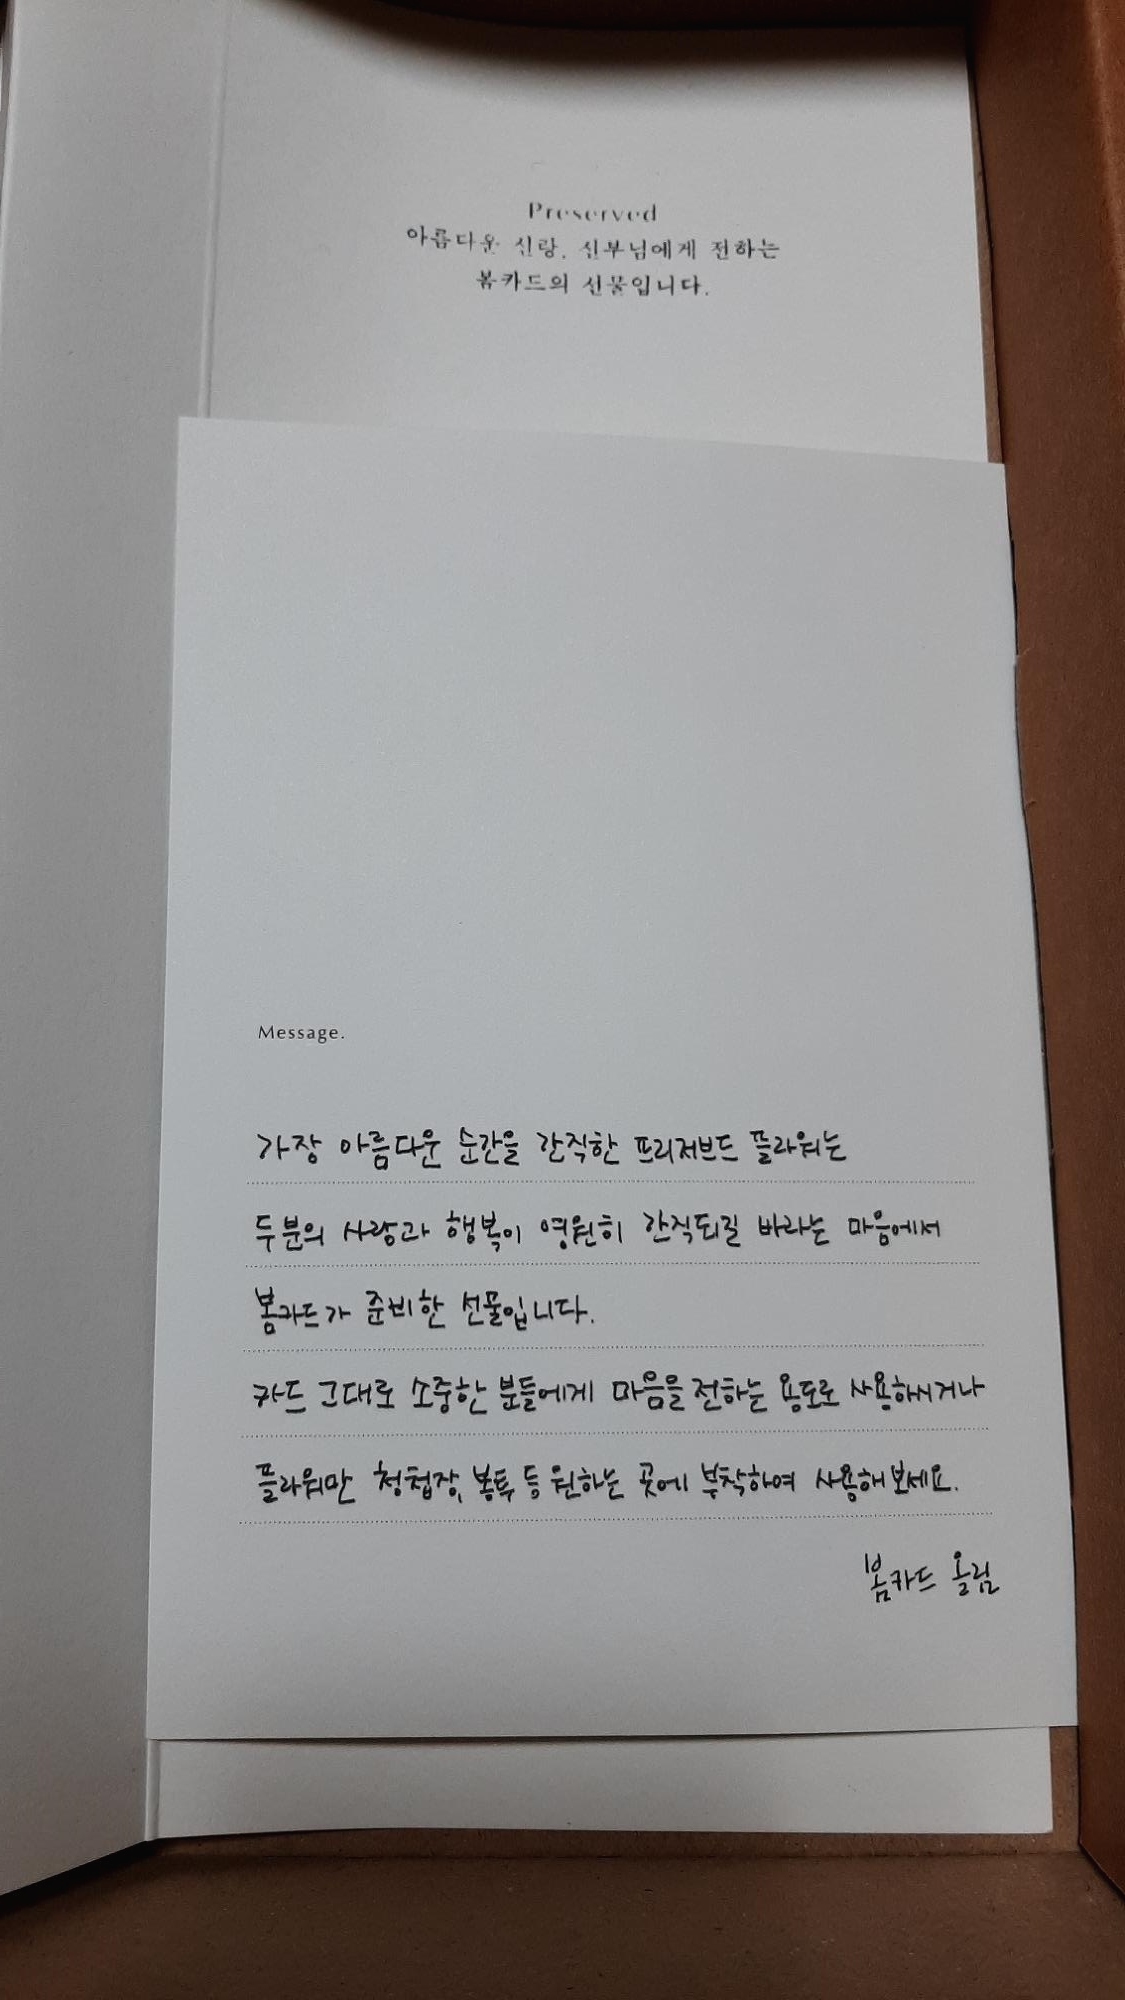 Preserved
아름다운 신랑, 신부님에게 전하는
봄카드의 선물입니다.
Message.
가장 아름다운 순간을 간직한 프리저브드 플라워는
두분의 사랑과 행복이 영원히 간직되길 바라는 마음에서
봄카드가 준비한 선물입니다.
카드 그대로 소중한 분들에게 마음을 전하는 용도로 사용하시거나
플라워만 청첩장, 봉투 등 원하는 곳에 부착하여 사용해보세요.
봄카드 올림